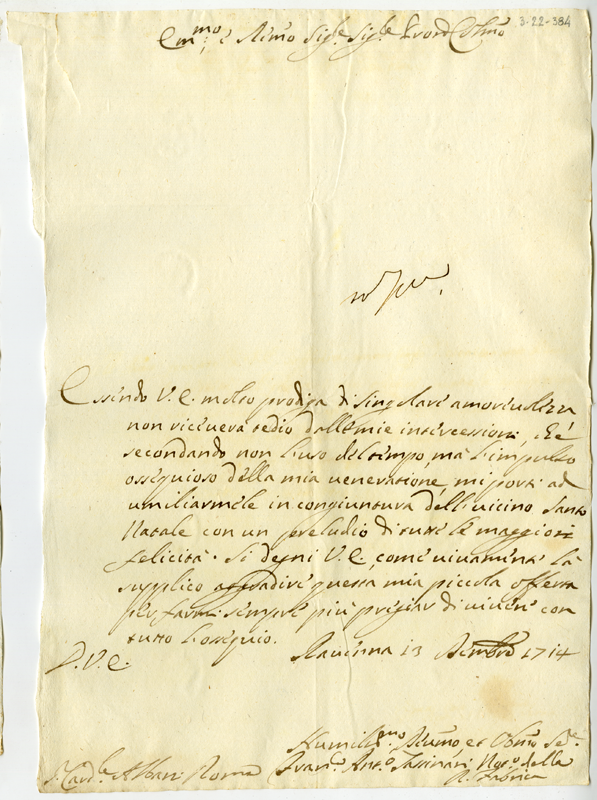 3-22-384
Em.mo e Rev.mo Sig.re Sig.re Pron Col.mo
Essendo V. E. molto prodiga di singolare amorevolezza
non riceverà tedio dall mie intercessioni, che
secondando non l'uso del tempo, ma l'impulso
ossequioso della mia venerazione, mi porti ad
umiliarmele in congiuntura dell' vicino Santo
Natale con un preludio di tutte le maggiori
felicità. Si degni V. E. come vivamente la
supplico aggradire questa mia piccola offerta
per farmi sempre più pregiar di vivere con
tutto l'ossequio.
D. V. E. Ravenna 13 Xembre 1714
Humiliss.mo et Obmo Se.e
S. Card.le Albani Roma Fran.o Ant.o Sassinari della
R. Fabrica